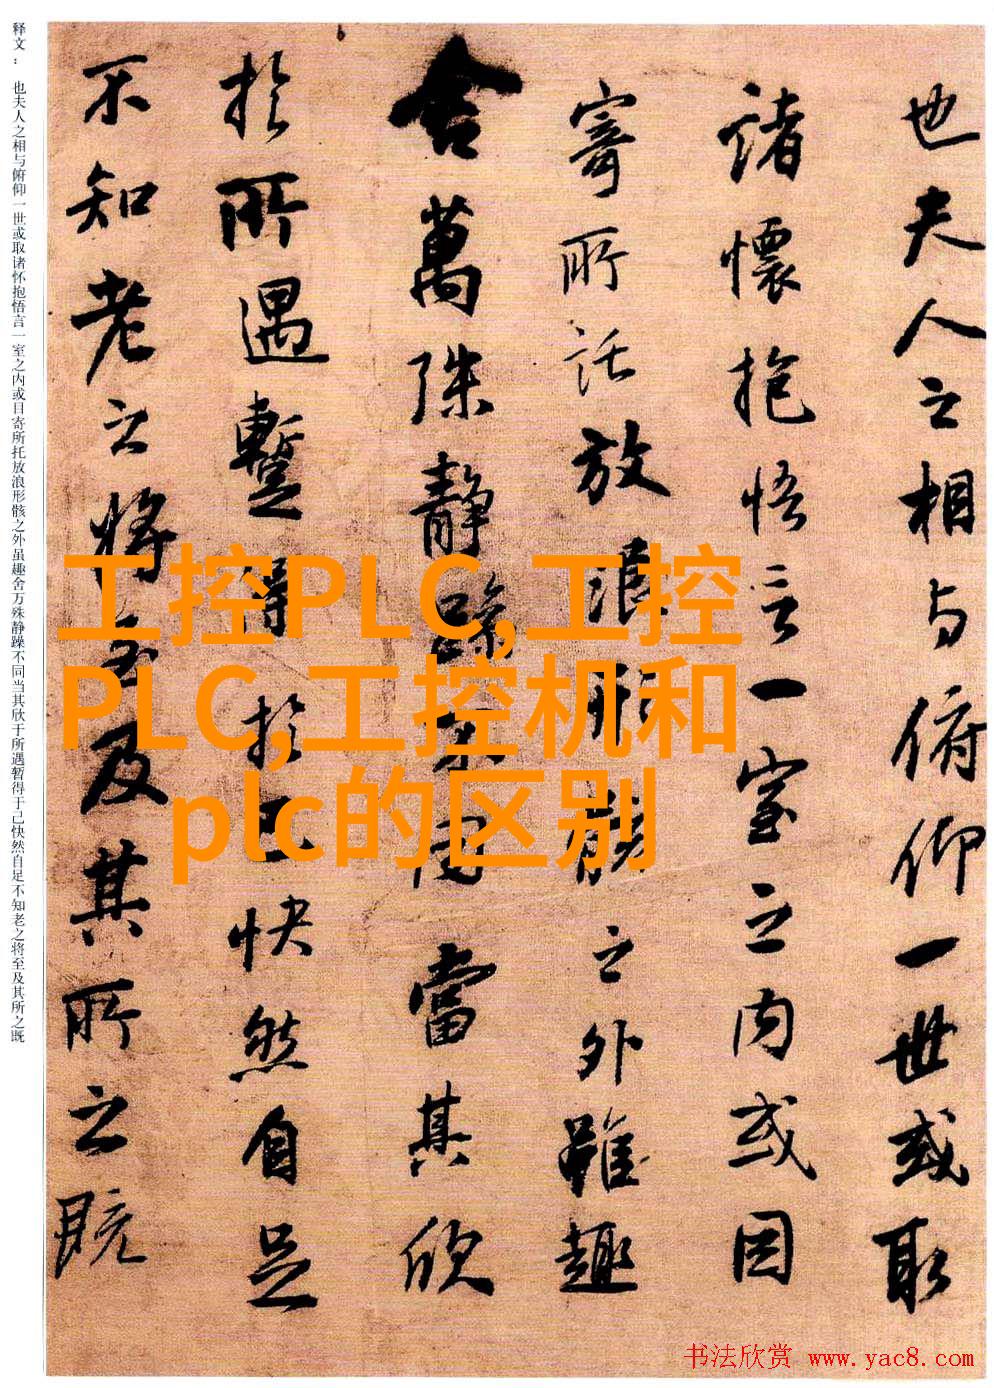 也夫人之相与俯仰一世或取
諸懷抱悟言一室之内或因
寄所託放浪形骸之外雖趣
舍萬殊静躁不同當其欣
於所遇蹔得於己快然自足
不知老之将至及其所之既
释文： 也夫人之相与俯仰一世或取诸怀抱悟言一室之内或目寄所托放浪形骸之外虽趣舍万殊静躁不同当其欣于所遇暂得于己快然自足不知老之将至及其所之既
工控PLC,工控
PLC,工控机和
plc的区别
书法欣赏 www.yac8.com